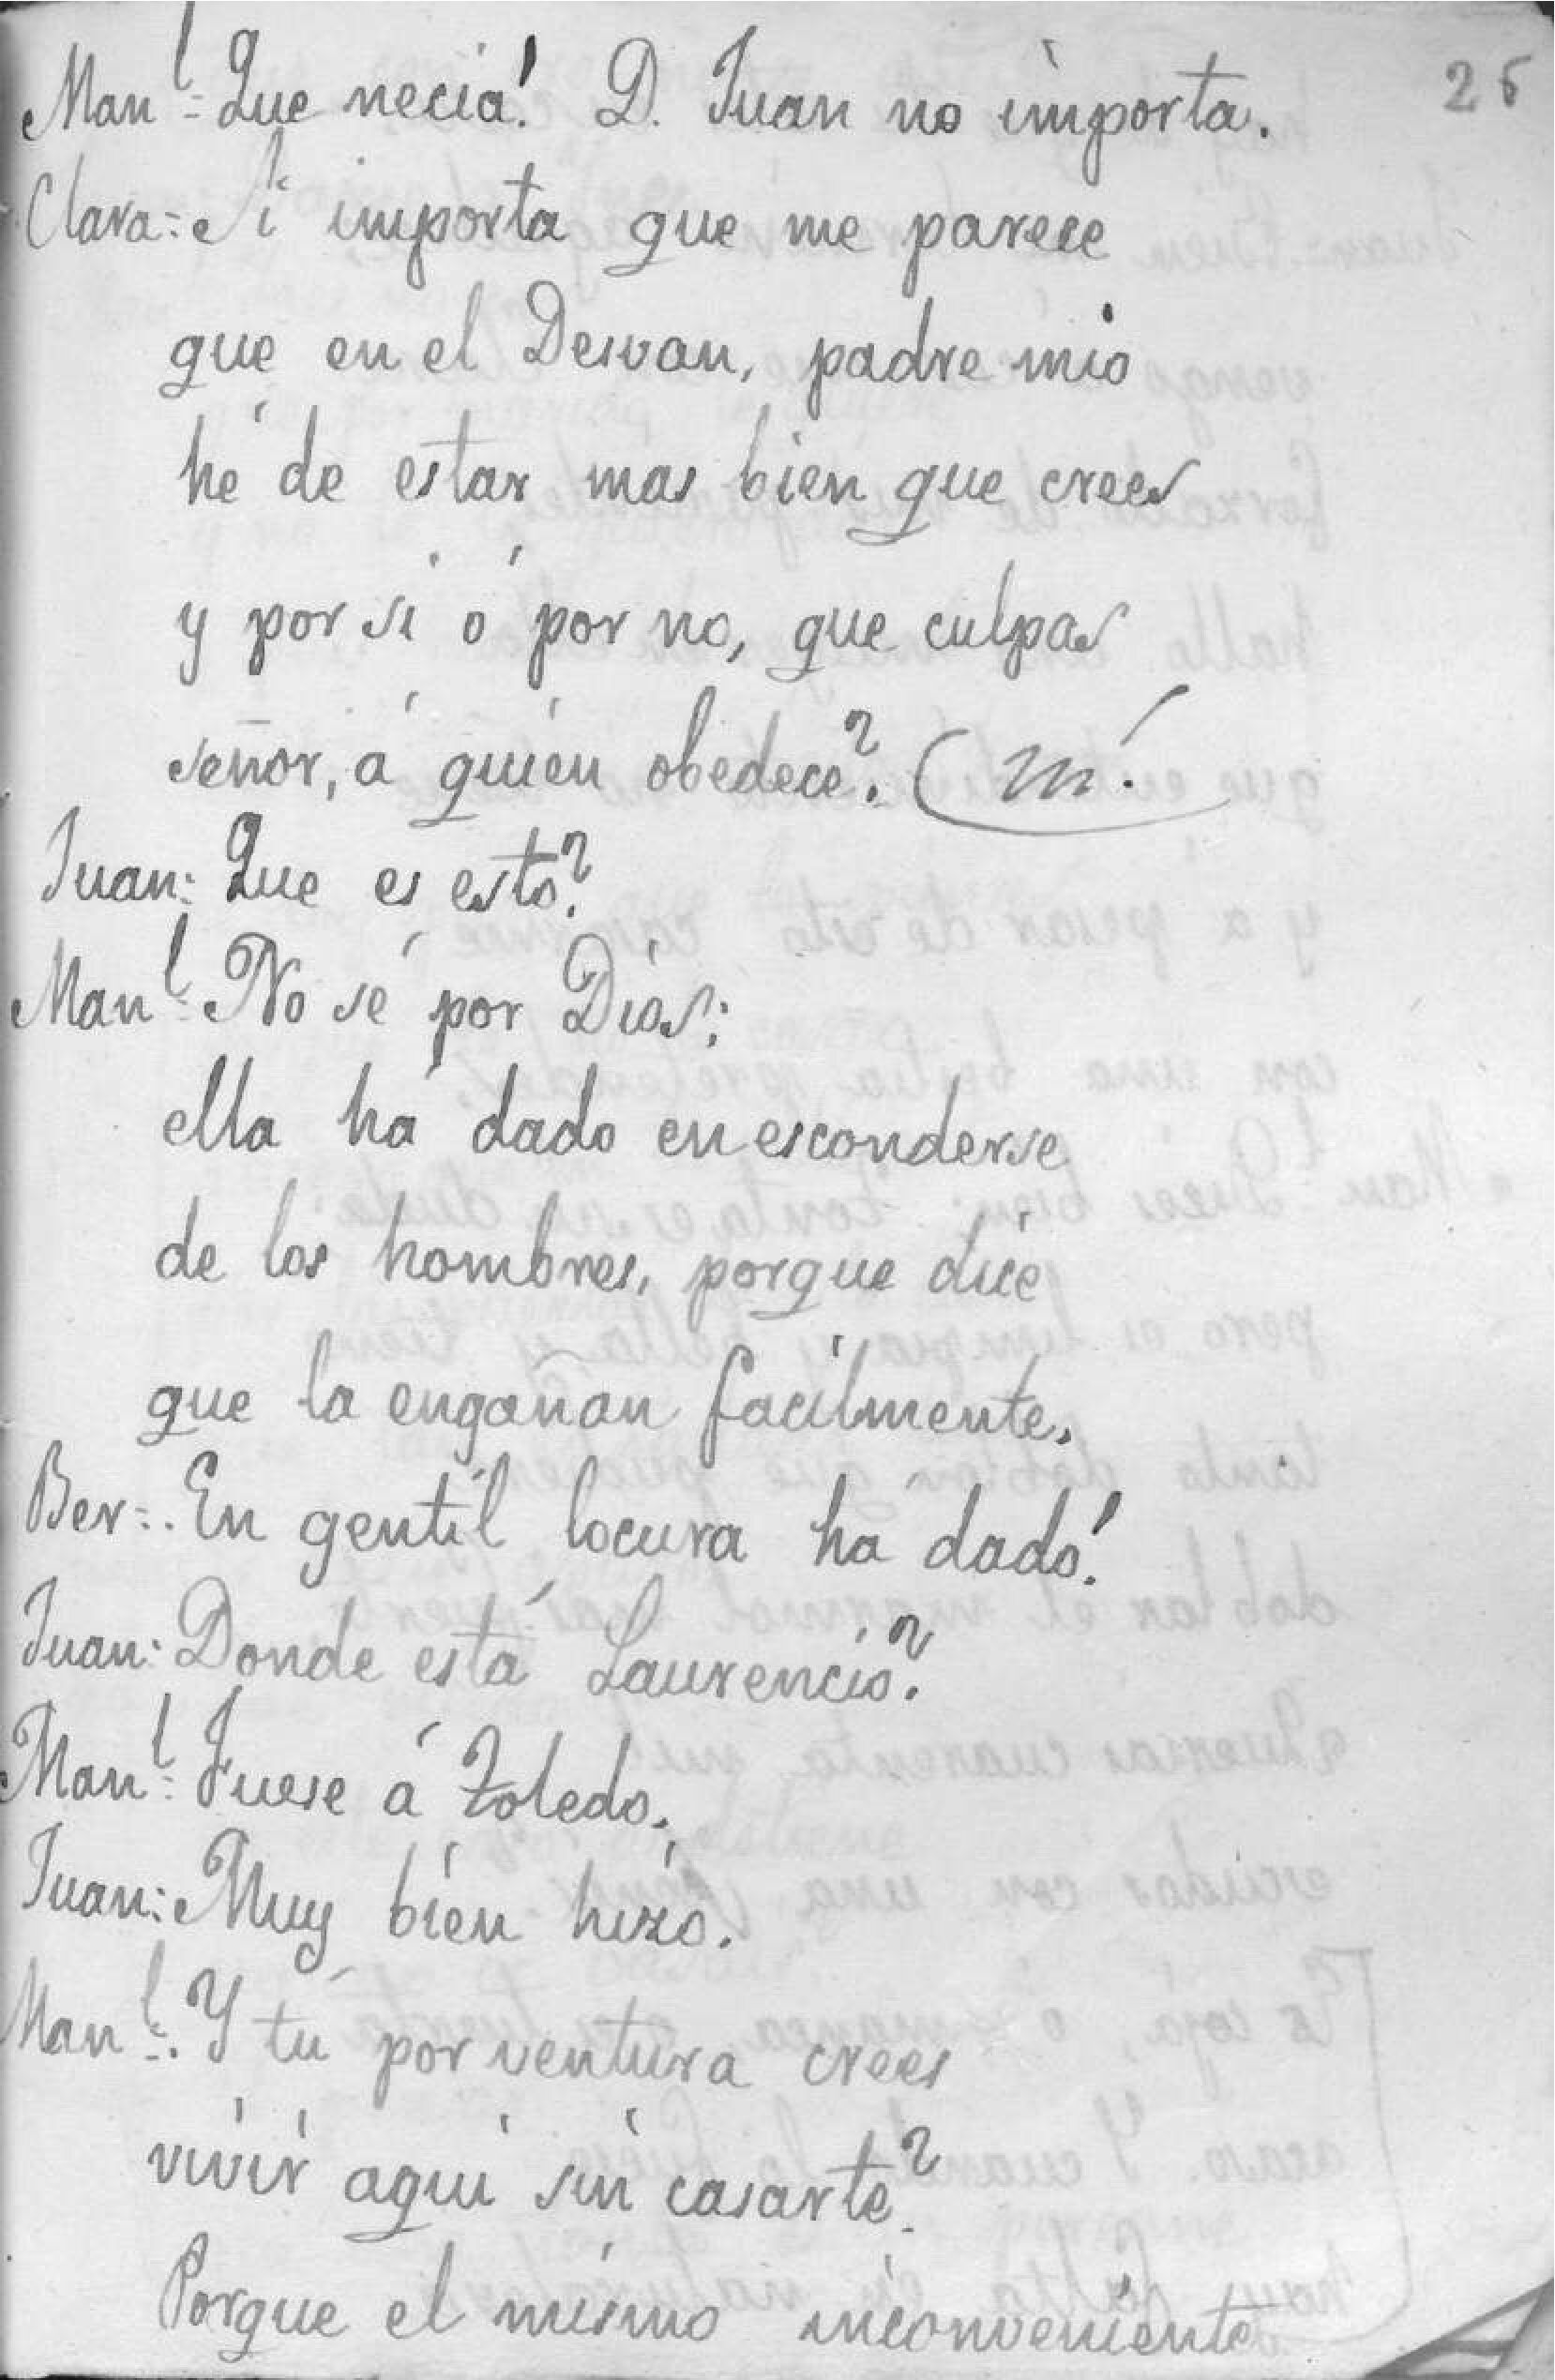 25
Man.l = Que necia! D. Juan no importa.
Clara = Si importa que me parece
que en el Desvan, padre mio
hé de estar mas bien que crees
y por si ó por no, que culpas
señor, á quien obedece? (m!
Juan: Que es esto?
Man.l = No sé por Dios;
ella há dado en esconderse
de los hombres, porque dice
que la engañan facilmente.
Ber =. En gentil locura há dado!
Juan: Donde está Laurencio?
Man.l = Fuese á Toledo.
Juan: Muy bien hizo.
Man.l =. Y tú por ventura crees
vivir aqui sin casarte?
Porque el mismo inconveniente